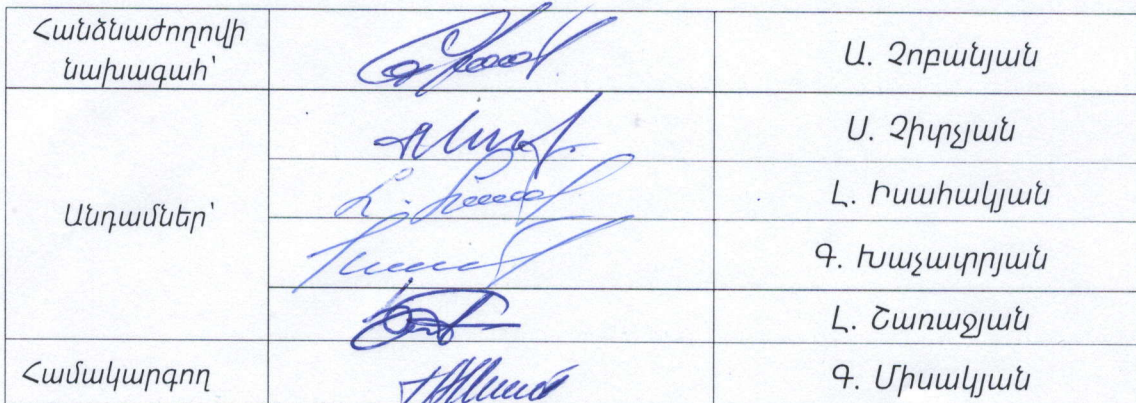 Հանձնաժողովի
նախագահ՝
Ա. Չոբանյան
Անդամներ՝
Ս. Չիտչյան
Լ. Իսահակյան
Գ. Խաչատրյան
Լ. Շառաջյան
Համակարգող
Գ. Միսակյան